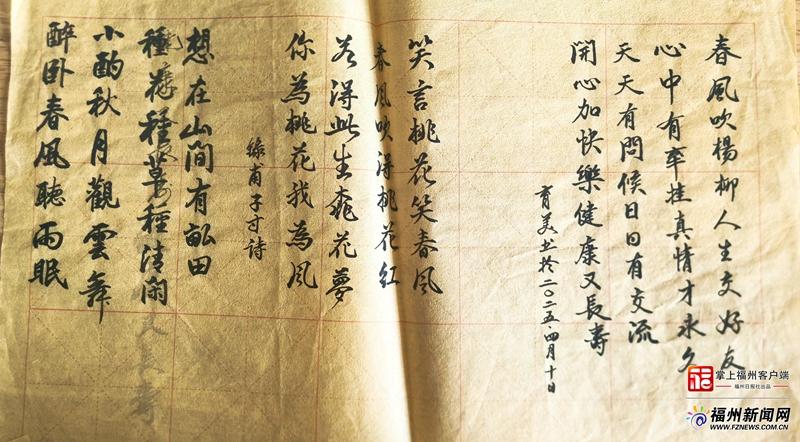 春風吹楊柳人生交好友
心中有牽挂真情才永久
天天有問候日日有交流
開心加快樂健康又長壽
育美书於二〇二五·四月十日
笑言桃花笑春風
春風吹得桃花紅
若得此生桃花夢
你為桃花我為風
甫子寸詩
想在山間有畝田
種花種草種清閑
小酌秋月觀雲舞
醉卧春風聽雨眠
掌上福州客户端
福州日报社出品
福州新闻网
WWW.FZNEWS.COM.CN